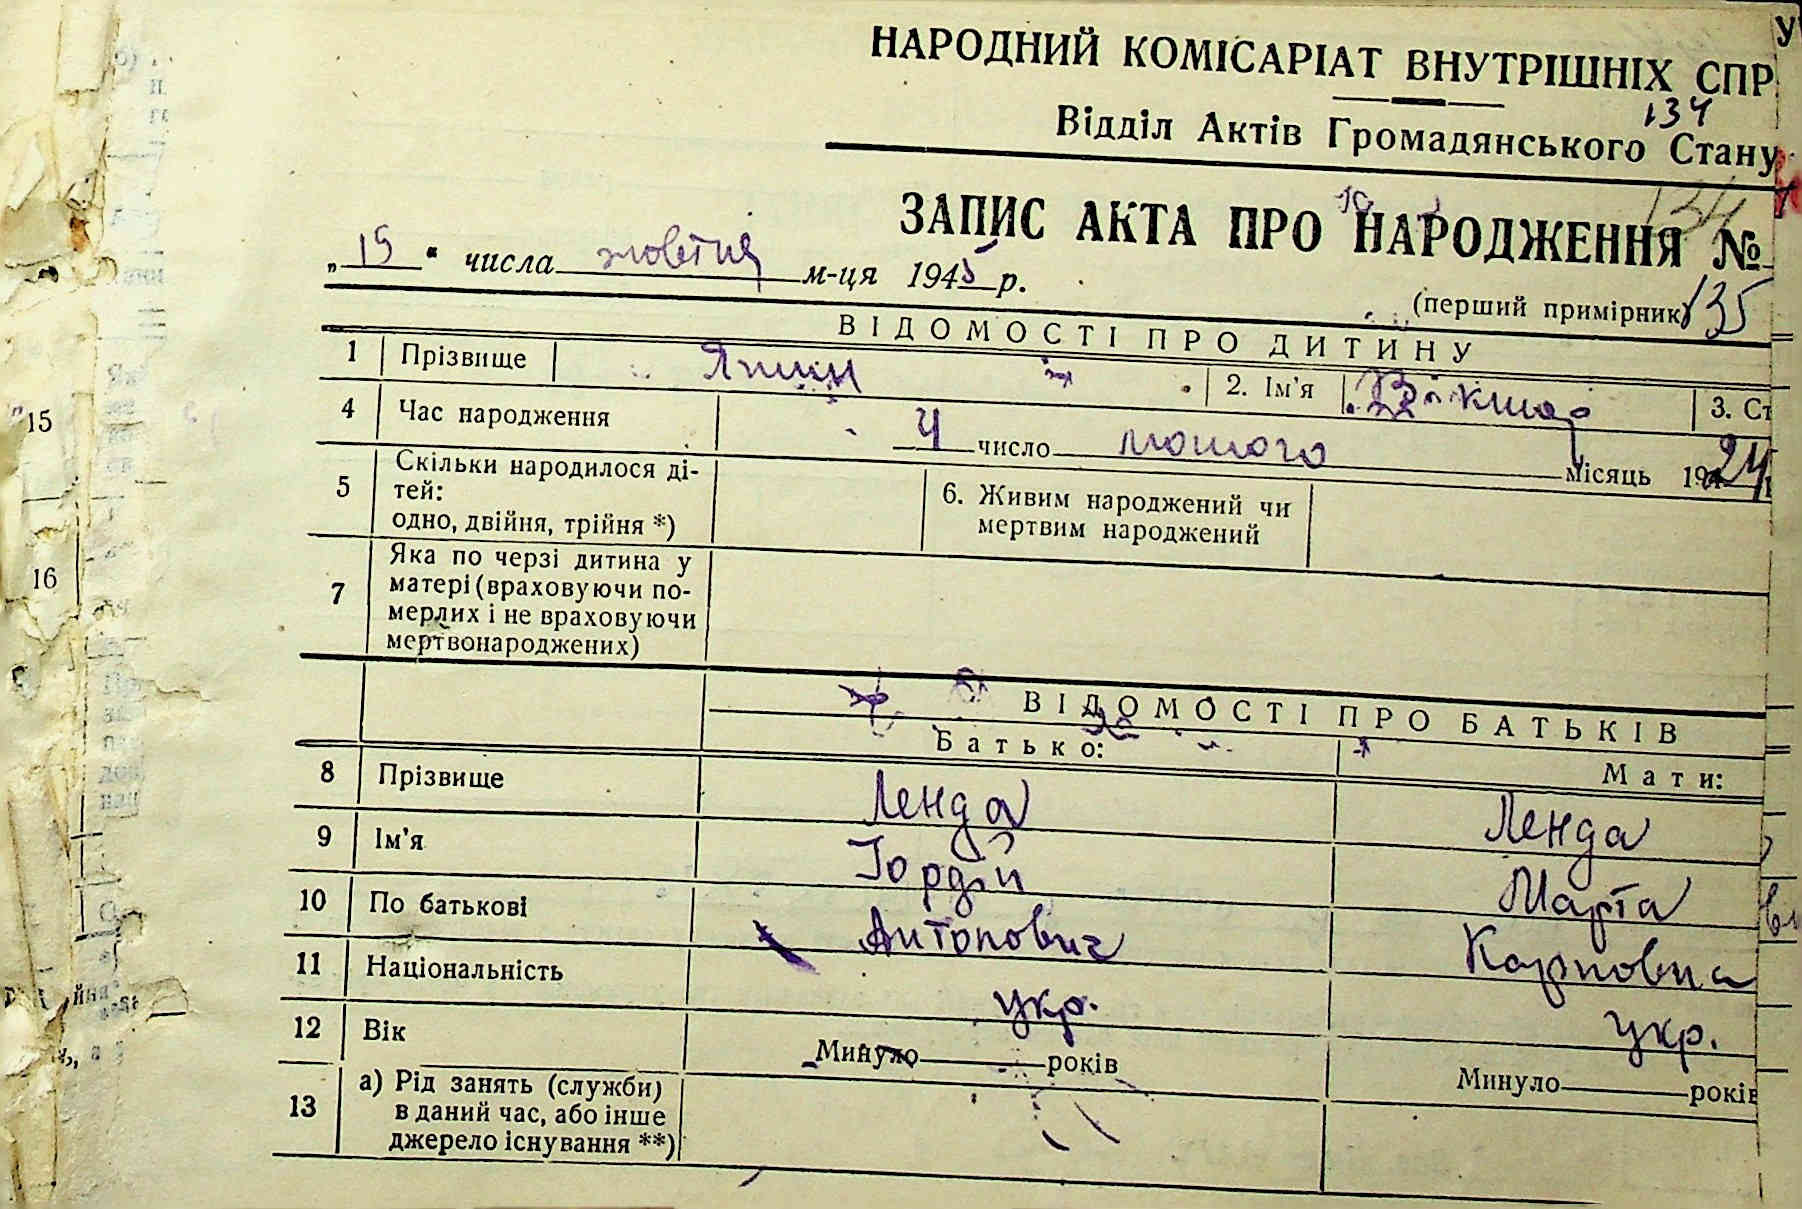 НАРОДНИЙ КОМІСАРІАТ ВНУТРІШНІХ СПР
134
Відділ Актів Громадянського Стану
ЗАПИС АКТА ПРО НАРОДЖЕННЯ №
134
„15" числа жовтня м-ця 1945 р.
(перший примірник) 135
ВІДОМОСТІ ПРО ДИТИНУ
1 Прізвище 2. Ім'я 3. Ст
4 Час народження 4 число лютого місяць 1924
5 Скільки народилося ді-
тей:
одно, двійня, трійня *)
6. Живим народжений чи
мертвим народжений
7 Яка по черзі дитина у
матері (враховуючи по-
мерлих і не враховуючи
мертвонароджених)
ВІДОМОСТІ ПРО БАТЬКІВ
Батько: Мати:
8 Прізвище Ленда Ленда
9 Ім'я Гордій Марта
10 По батькові Антонович Карповна
11 Національність укр. укр.
12 Вік Минуло років Минуло років
13 а) Рід занять (служби)
в даний час, або інше
джерело існування **)
15
16